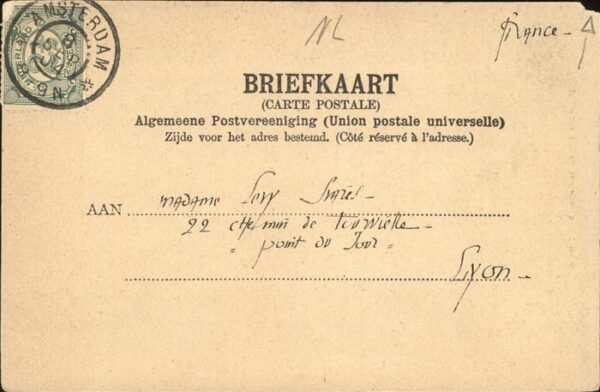 AMSTERDAM
NL
France -
BRIEFKAART
(CARTE POSTALE)
Algemeene Postvereeniging (Union postale universelle)
Zijde voor het adres bestemd. (Côté réservé à l'adresse.)
AAN
Madame Levy
22 chemin de
" point du Jour -
Lyon -